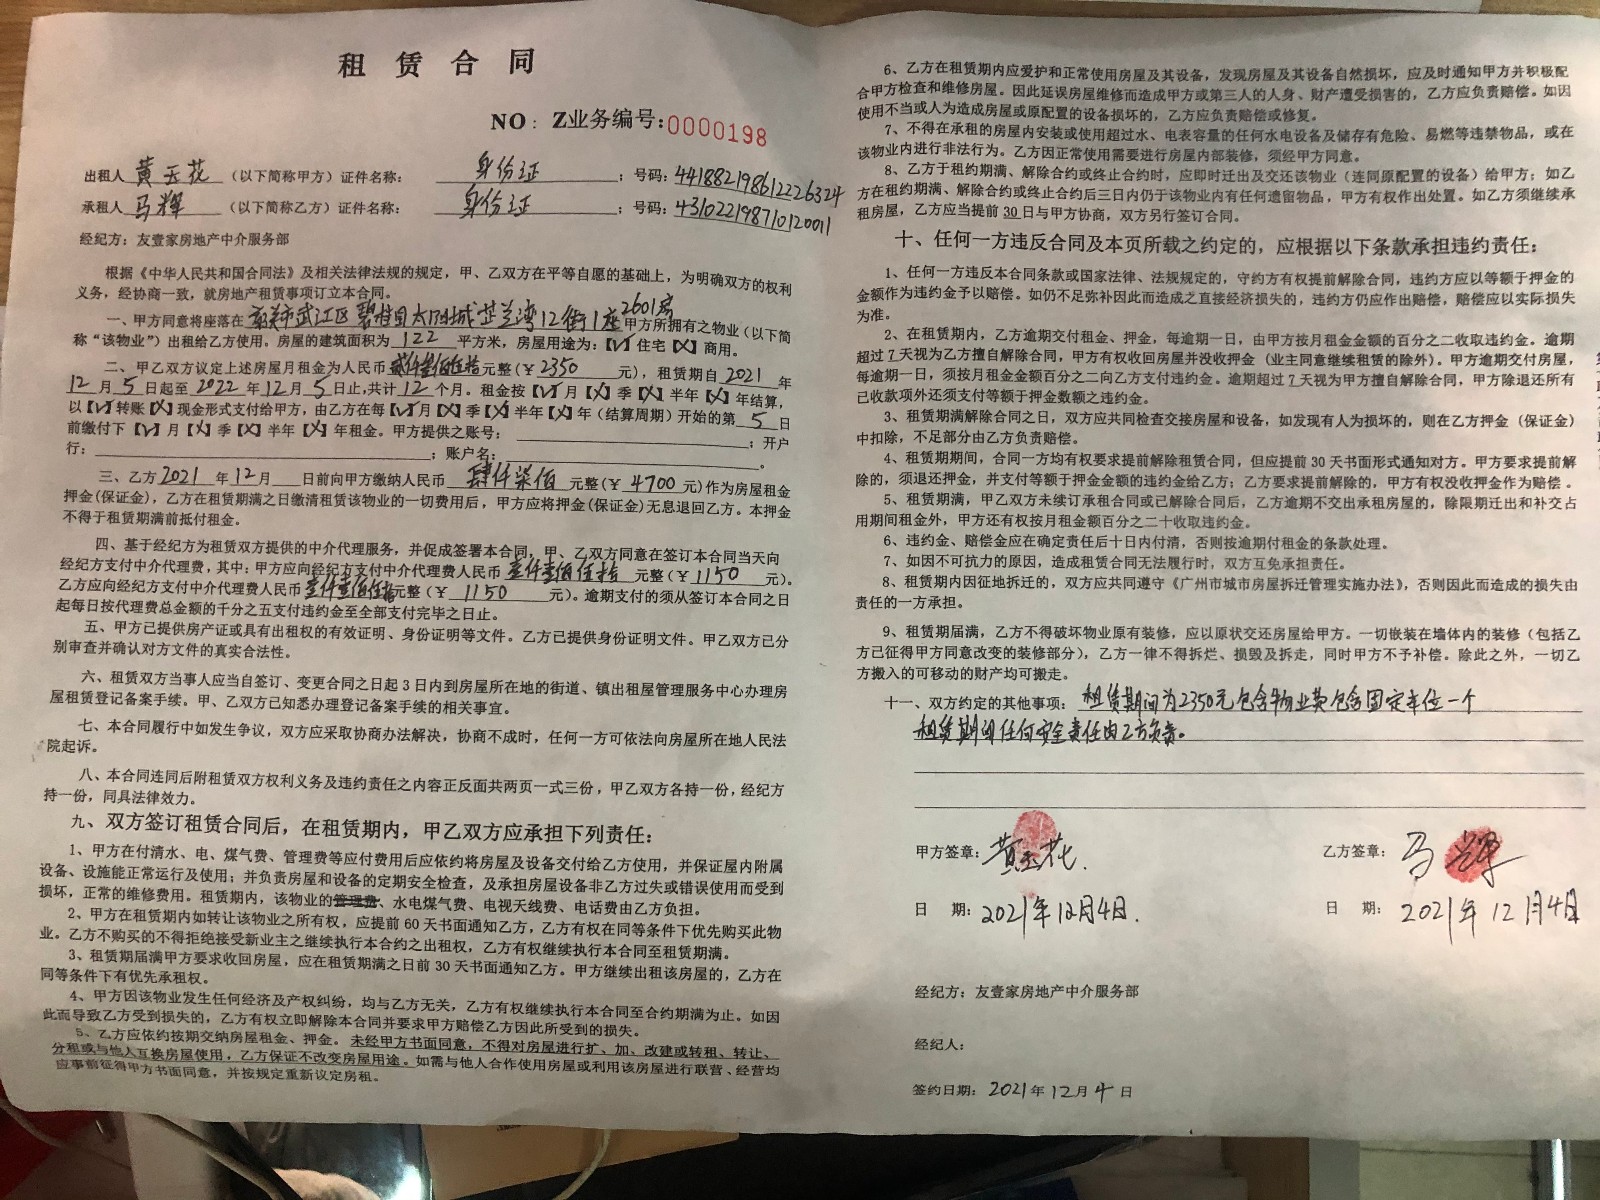 租赁合同
NO：Z业务编号：0000198
出租人 黄玉花 （以下简称甲方）证件名称： 身份证 ；号码：441882198612226324
承租人 马辉 （以下简称乙方）证件名称： 身份证 ；号码：431022198710120011
经纪方：友壹家房地产中介服务部
根据《中华人民共和国合同法》及相关法律法规的规定，甲、乙双方在平等自愿的基础上，为明确双方的权利
义务，经协商一致，就房地产租赁事项订立本合同。
一、甲方同意将座落在 韶关市武江区碧桂园太阳城芷兰湾12街1座2601房 甲方所拥有之物业（以下简
称“该物业”）出租给乙方使用。房屋的建筑面积为 122 平方米，房屋用途为：【√】住宅【X】商用。
二、甲乙双方议定上述房屋月租金为人民币 贰仟叁佰伍拾 元整（¥ 2350 元），租赁期自 2021 年
12 月 5 日起至 2022 年 12 月 5 日止，共计 12 个月。租金按【√】月【X】季【X】半年【X】年结算，
以【√】转账【X】现金形式支付给甲方，由乙方在每【√】月【X】季【X】半年【X】年（结算周期）开始的第 5 日
前缴付下【√】月【X】季【X】半年【X】年租金。甲方提供之账号： ；开户
行： ；账户名： 。
三、乙方 2021 年 12 月 日前向甲方缴纳人民币 肆仟柒佰 元整（¥ 4700 元）作为房屋租金
押金(保证金)，乙方在租赁期满之日缴清租赁该物业的一切费用后，甲方应将押金(保证金)无息退回乙方。本押金
不得于租赁期满前抵付租金。
四、基于经纪方为租赁双方提供的中介代理服务，并促成签署本合同，甲、乙双方同意在签订本合同当天向
经纪方支付中介代理费，其中：甲方应向经纪方支付中介代理费人民币 壹仟壹佰伍拾 元整（¥ 1150 元）。
乙方应向经纪方支付中介代理费人民币 壹仟壹佰伍拾 元整（¥ 1150 元）。逾期支付的须从签订本合同之日
起每日按代理费总金额的千分之五支付违约金至全部支付完毕之日止。
五、甲方已提供房产证或具有出租权的有效证明、身份证明等文件。乙方已提供身份证明文件。甲乙双方已分
别审查并确认对方文件的真实合法性。
六、租赁双方当事人应当自签订、变更合同之日起 3 日内到房屋所在地的街道、镇出租屋管理服务中心办理房
屋租赁登记备案手续。甲、乙双方已知悉办理登记备案手续的相关事宜。
七、本合同履行中如发生争议，双方应采取协商办法解决，协商不成时，任何一方可依法向房屋所在地人民法
院起诉。
八、本合同连同后附租赁双方权利义务及违约责任之内容正反面共两页一式三份，甲乙双方各持一份，经纪方
持一份，同具法律效力。
九、双方签订租赁合同后，在租赁期内，甲乙双方应承担下列责任：
1、甲方在付清水、电、煤气费、管理费等应付费用后应依约将房屋及设备交付给乙方使用，并保证屋内附属
设备、设施能正常运行及使用；并负责房屋和设备的定期安全检查，及承担房屋设备非乙方过失或错误使用而受到
损坏，正常的维修费用。租赁期内，该物业的管理费、水电煤气费、电视天线费、电话费由乙方负担。
2、甲方在租赁期内如转让该物业之所有权，应提前 60 天书面通知乙方，乙方有权在同等条件下优先购买此物
业。乙方不购买的不得拒绝接受新业主之继续执行本合约之出租权，乙方有权继续执行本合同至租赁期满。
3、租赁期届满甲方要求收回房屋，应在租赁期满之日前 30 天书面通知乙方。甲方继续出租该房屋的，乙方在
同等条件下有优先承租权。
4、甲方因该物业发生任何经济及产权纠纷，均与乙方无关，乙方有权继续执行本合同至合约期满为止。如因
此而导致乙方受到损失的，乙方有权立即解除本合同并要求甲方赔偿乙方因此所受到的损失。
5、乙方应依约按期交纳房屋租金、押金。未经甲方书面同意，不得对房屋进行扩、加、改建或转租、转让、
分租或与他人互换房屋使用，乙方保证不改变房屋用途。如需与他人合作使用房屋或利用该房屋进行联营、经营均
应事前征得甲方书面同意，并按规定重新议定房租。
6、乙方在租赁期内应爱护和正常使用房屋及其设备，发现房屋及其设备自然损坏，应及时通知甲方并积极配
合甲方检查和维修房屋。因此延误房屋维修而造成甲方或第三人的人身、财产遭受损害的，乙方应负责赔偿。如因
使用不当或人为造成房屋或原配置的设备损坏的，乙方应负责赔偿或修复。
7、不得在承租的房屋内安装或使用超过水、电表容量的任何水电设备及储存有危险、易燃等违禁物品，或在
该物业内进行非法行为。乙方因正常使用需要进行房屋内部装修，须经甲方同意。
8、乙方于租约期满、解除合约或终止合约时，应即时迁出及交还该物业（连同原配置的设备）给甲方；如乙
方在租约期满、解除合约或终止合约后三日内仍于该物业内有任何遗留物品，甲方有权作出处置。如乙方须继续承
租房屋，乙方应当提前 30 日与甲方协商，双方另行签订合同。
十、任何一方违反合同及本页所载之约定的，应根据以下条款承担违约责任：
1、任何一方违反本合同条款或国家法律、法规规定的，守约方有权提前解除合同，违约方应以等额于押金的
金额作为违约金予以赔偿。如仍不足弥补因此而造成之直接经济损失的，违约方仍应作出赔偿，赔偿应以实际损失
为准。
2、在租赁期内，乙方逾期交付租金、押金，每逾期一日，由甲方按月租金金额的百分之二收取违约金。逾期
超过 7 天视为乙方擅自解除合同，甲方有权收回房屋并没收押金（业主同意继续租赁的除外）。甲方逾期交付房屋，
每逾期一日，须按月租金金额百分之二向乙方支付违约金。逾期超过 7 天视为甲方擅自解除合同，甲方除退还所有
已收款项外还须支付等额于押金数额之违约金。
3、租赁期满解除合同之日，双方应共同检查交接房屋和设备，如发现有人为损坏的，则在乙方押金（保证金）
中扣除，不足部分由乙方负责赔偿。
4、租赁期期间，合同一方均有权要求提前解除租赁合同，但应提前 30 天书面形式通知对方。甲方要求提前解
除的，须退还押金，并支付等额于押金金额的违约金给乙方；乙方要求提前解除的，甲方有权没收押金作为赔偿。
5、租赁期满，甲甲乙双方未续订承租合同或已解除合同后，乙方逾期不交出承租房屋的，除限期迁出和补交占
用期间租金外，甲方还有权按月租金额百分之二十收取违约金。
6、违约金、赔偿金应在确定责任后十日内付清，否则按逾期付租金的条款处理。
7、如因不可抗力的原因，造成租赁合同无法履行时，双方互免承担责任。
8、租赁期内因征地拆迁的，双方应共同遵守《广州市城市房屋拆迁管理实施办法》，否则因此而造成的损失由
责任的一方承担。
9、租赁期届满，乙方不得破坏物业原有装修，应以原状交还房屋给甲方。一切嵌装在墙体内的装修（包括乙
方已征得甲方同意改变的装修部分），乙方一律不得拆烂、损毁及拆走，同时甲方不予补偿。除此之外，一切乙
方搬入的可移动的财产均可搬走。
十一、双方约定的其他事项：租赁期间为2350元包含物业费包含固定车位一个
租赁期间任何安全责任由乙方负责。
甲方签章：黄玉花.
乙方签章：马辉
日 期：2021年12月4日.
日 期：2021年12月4日
经纪方：友壹家房地产中介服务部
经纪人：
签约日期：2021年12月4日